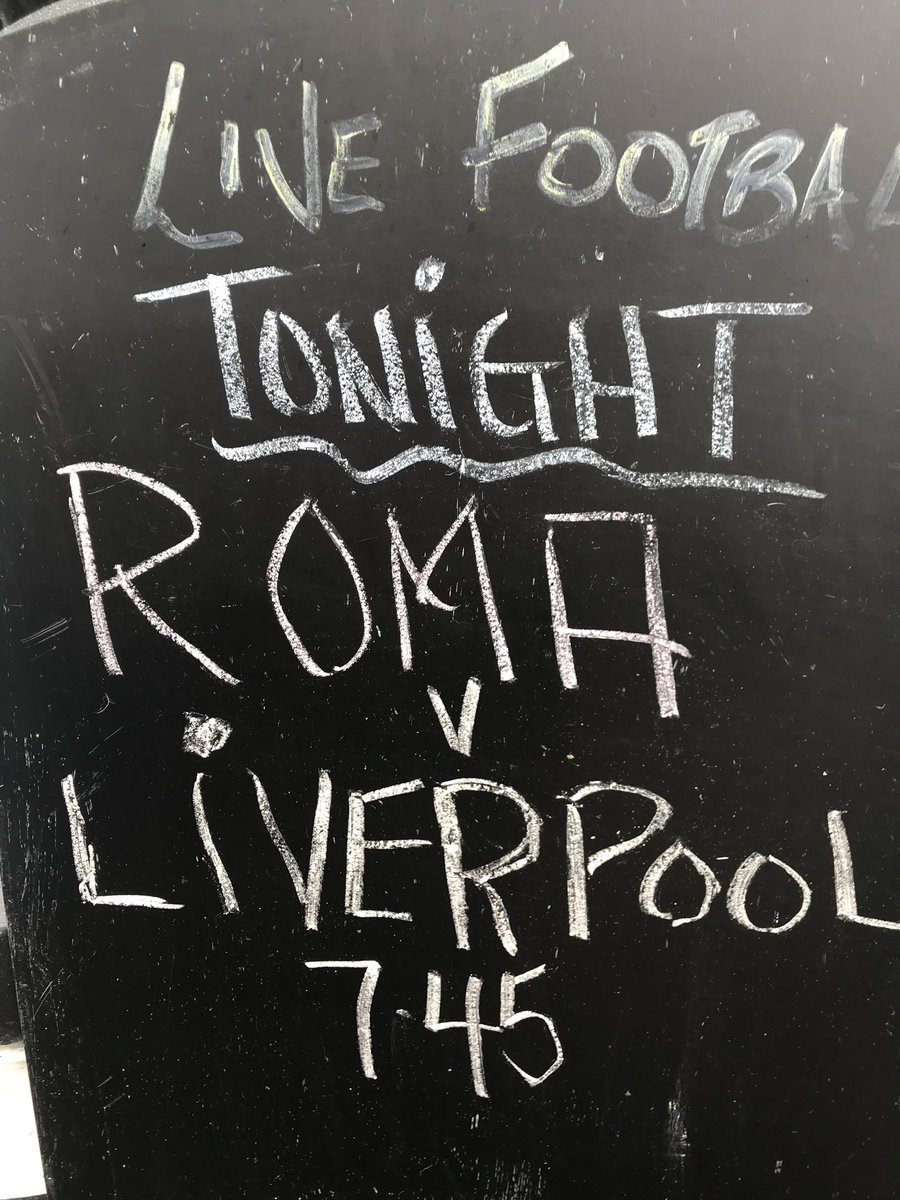 LIVE FOOTBAL
TONIGHT
ROMA
V
LIVERPOOL
7.45